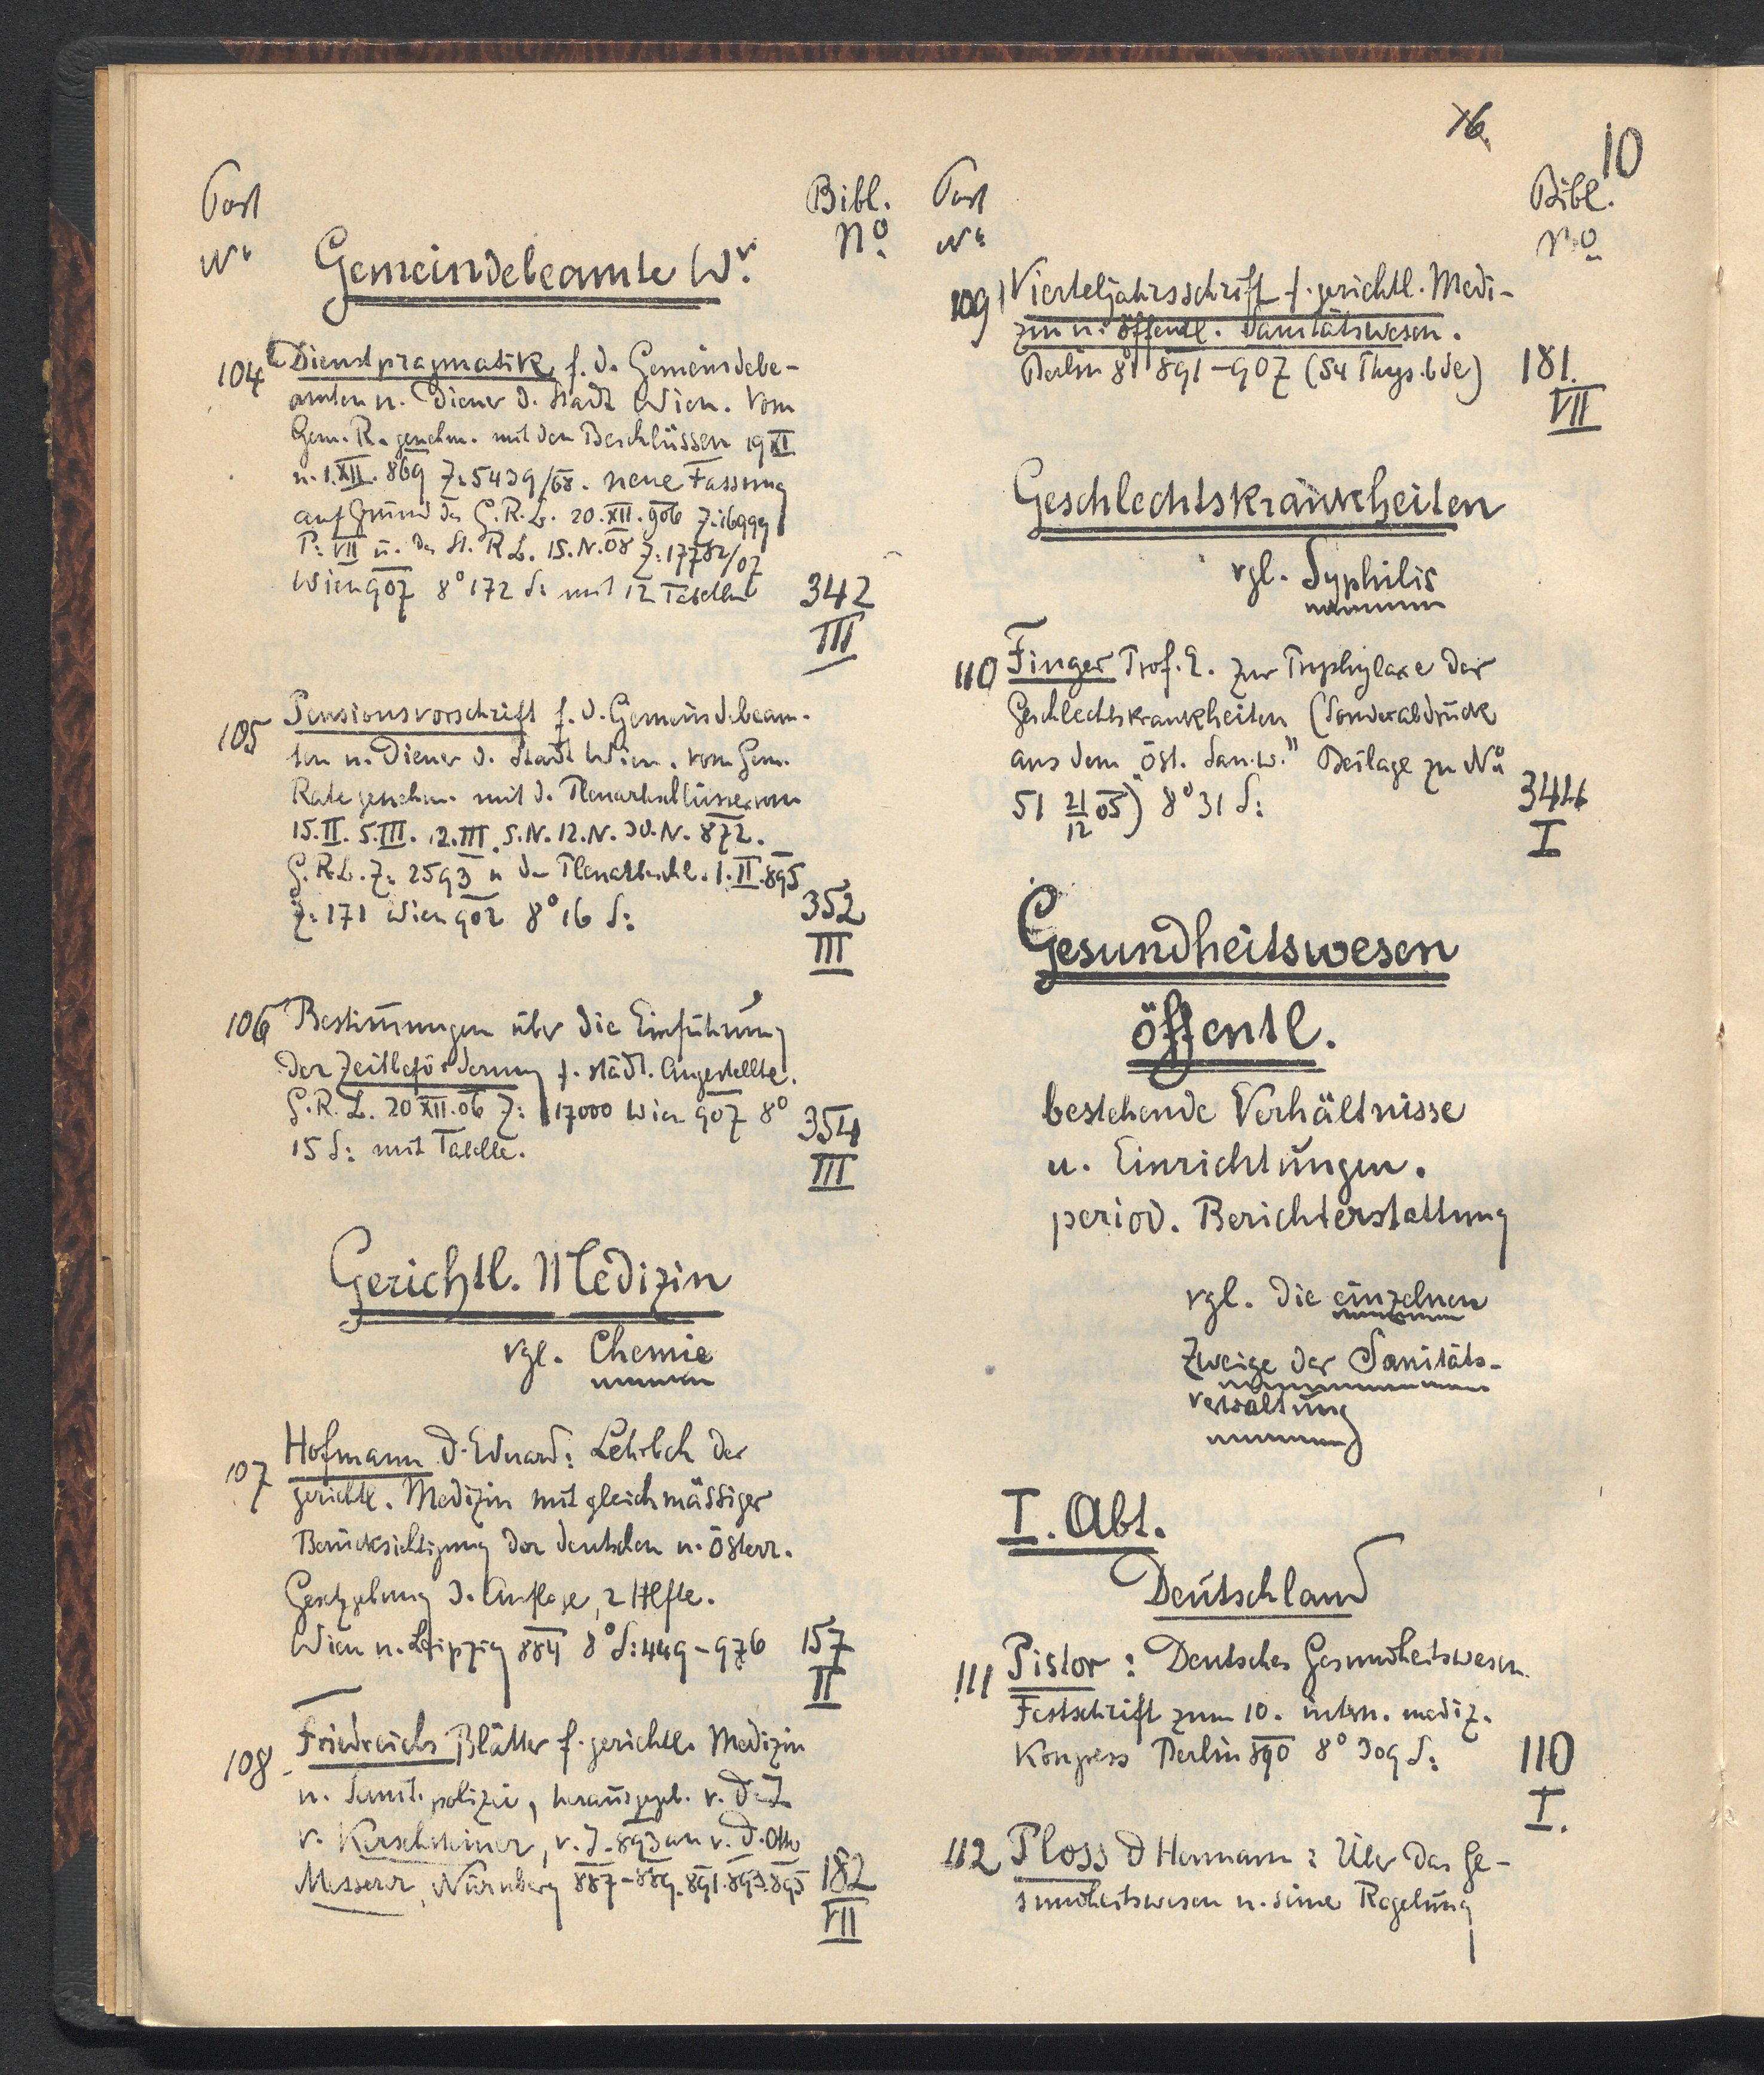 76.
10
Post
No
Bibl.
No
Gemeindebeamte Wr.
104 Dienstpragmatik f. d. Gemeindebe-
amten u. Diener d. Stadt Wien. Vom
Gem. R. genehm. mit den Beschlüssen 19 XI
u. 1. XII. 869 Z: 5439/68. neue Fassung
auf Grund des G. R. B. 20. XII. 906 Z: 16999
P: VII u. des St. R. B. 15. IV. 08 Z: 17782/07
Wien 907 8° 172 S: mit 12 Tabellen
342
III
105 Pensionsvorschrift f. d. Gemeindebeam-
ten u. Diener d. Stadt Wien. vom Gem.
Rate genehm. mit d. Plenarbeschlüssen vom
15. II. 5. III. 12. III. 5. IV. 12. IV. 30. IV. 872.
G. R. B. Z: 2593 u. den Plenarbeschl. 1. II. 895
Z: 171 Wien 902 8° 16 S:
352
III
106 Bestimmungen über die Einführung
der Zeitbeförderung f. städt. Angestellte.
G. R. B. 20 XII. 06 Z: 17000 Wien 907 8°
15 S: mit Tabelle.
354
III
Gerichtl. Medizin
vgl. Chemie
107 Hofmann D. Eduard: Lehrbch der
gerichtl. Medizin mit gleichmässiger
Berücksichtigung der deutschen u. österr.
Gesetzgebung 3. Auflage, 2 Hlfte.
Wien u. Leipzig 884 8° S: 449-976
157
II
108 Friedreichs Blätter f. gerichtl. Medizin
u. Sanit. polizei, herausgegeb. v. D. J.
v. Kerschsteiner, v. J. 893 an v. D. Otto
Messerer, Nürnberg 887-889. 891. 893. 895
182
VII
Post
No
Bibl.
No
109 Vierteljahrsschrift f. gerichtl. Medi-
zin u. öffentl. Sanitätswesen.
Berlin 8° 891-907 (54 Thys. bde)
181.
VII
Geschlechtskrankheiten
vgl. Syphilis
110 Finger Prof. E. zur Prophylaxe der
Geschlechtskrankheiten (Sonderabdruck
aus dem "öst. San. w." Beilage zu No
51 21/12 05) 8° 31 S:
344
I
Gesundheitswesen
öffentl.
bestehende Verhältnisse
u. Einrichtungen.
period. Berichterstattung
vgl. die einzelnen
Zweige der Sanitäts-
verwaltung
I. Abt.
Deutschland
111 Pistor: Deutsches Gesundheitswesen.
Festschrift zum 10. intern. mediz.
Kongress Berlin 890 8° 309 S:
110
I.
112 Ploss D Hermann: Über das Ge-
sundheitswesen u. seine Regelung